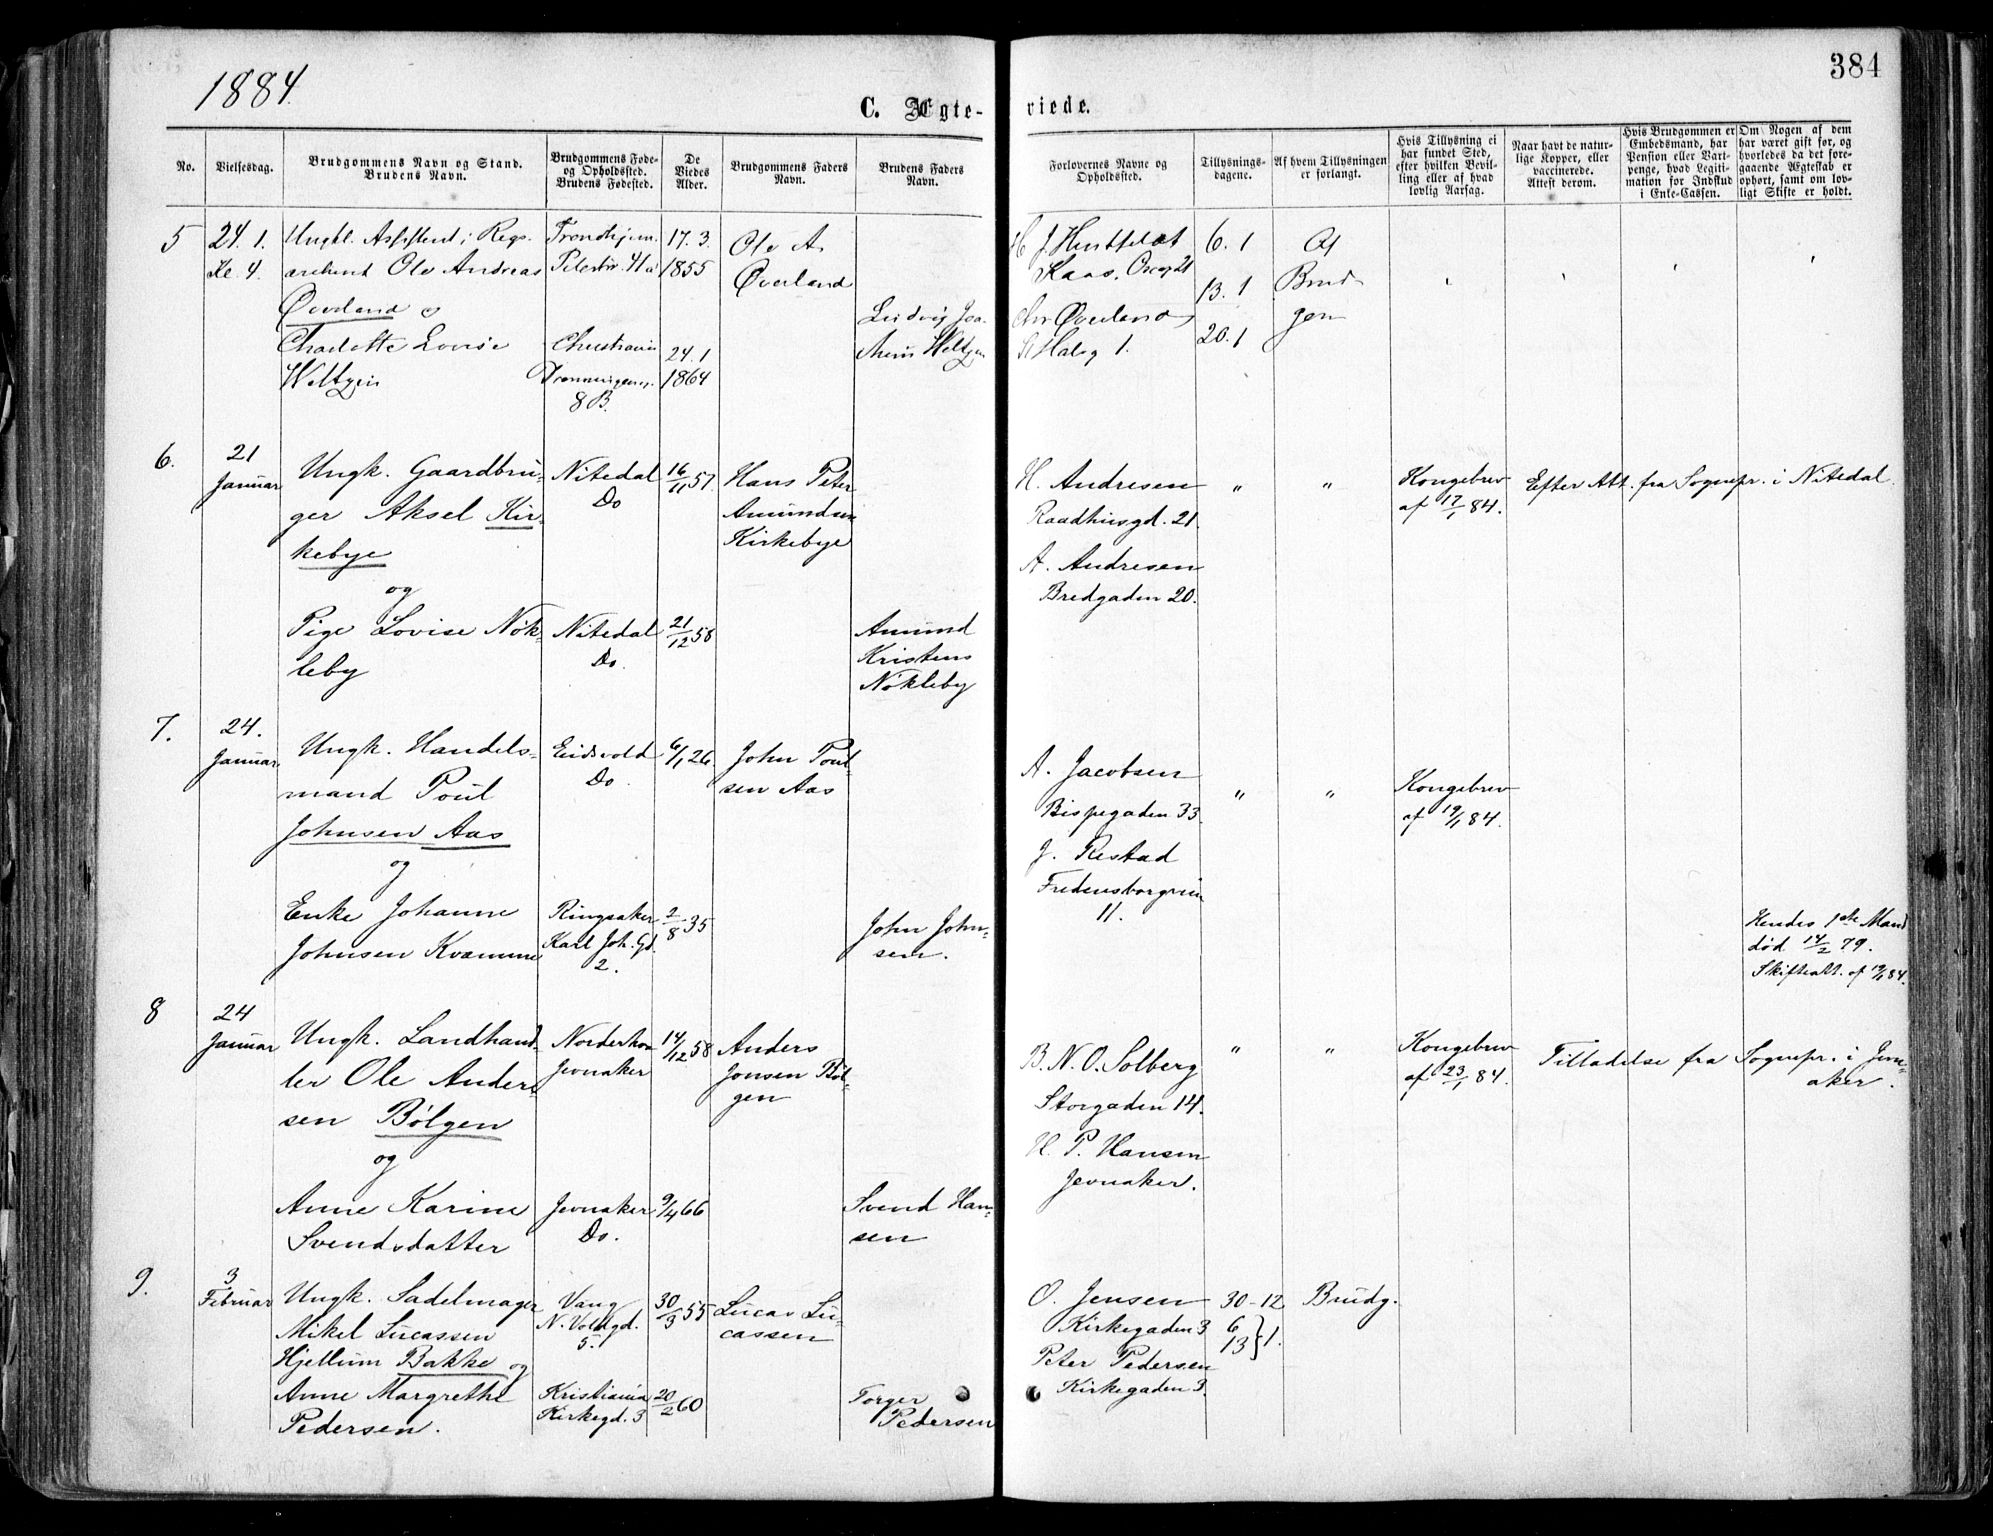 1884.
384
C. Ægte-
viede.
No.
Vielsesdag.
Brudgommens Navn og Stand.
Brudens Navn.
Brudgommens Føde-
og Opholdssted.
Brudens Fødested.
De
Viedes
Alder.
Brudgommens Faders
Navn.
Brudens Faders
Navn.
Forlovernes Navne og
Opholdssted.
Tillysnings-
dagene.
Af hvem Tillysningen
er forlangt.
Hvis Tillysning ei
har fundet Sted,
efter hvilken Bevil-
ling eller af hvad
lovlig Aarsag.
Naar havt de natur-
lige Kopper, eller
vaccinerede.
Attest derom.
Hvis Brudgommen er
Embedsmand, har
Pension eller Vart-
penge, hvad Legiti-
mation for Indskud
i Enke-Cassen.
Om Nogen af dem
har været gift før, og
hvorledes da det fore-
gaaende Ægteskab er
ophørt, samt om lov-
ligt Skifte er holdt.
5
24. 1.
Kl. 4.
Ungkl. Assistent i Regs.
Ole Andreas
Øverland o
Charlotte Lovise
Weltzin
Trondhjem.
41a
Christiania
Dronningensg.
8 B.
17. 3.
1855
24. 1
1864
Ole A.
Øverland
Ludvig Joa-
chim Weltzin
Kaas. 21
Chr Øverland
St Halvg 1.
6. 1
13. 1
20. 1
Af
Brud
gom
6.
21
Januar
Ungk. Gaardbru-
ger Aksel Kir-
kebye
og
Pige Lovise Nøk-
leby
Nitedal
Do
Nitedal
Do.
16/11 57.
21/12 58
Hans Peter
Amundsen
Kirkebye
Amund
Kristens
Nøkleby
H. Andresen
Raadhusgd. 21.
A. Andresen
Bredgaden 20.
" "
Kongebrev
af 17/1 84.
Efter Att. fra Sognepr. i Nitedal.
7.
24.
Januar
Ungk. Handels-
mand Poul
Johnsen Aas
og
Enke Johanne
Johnsen Kvamme
Eidsvold
Do.
Ringsaker
Karl Joh. Gd.
2.
6/1 26.
2/8 35
John Poul-
sen Aas
John John-
sen.
A. Jacobsen
Bispegaden 33.
J. Restad
Fredensborgvein
11.
" "
Kongebrev
af 19/1 84.
Hendes 1ste Mand
død 14/2 79.
Skifteatt. af 19/1 84.
8
24
Januar
Ungk. Landhand-
ler Ole Ander-
sen Bølgen
og
Anne Karine
Svendsdatter
Norderhov
Jevnaker
Jevnaker
Do.
14/12 58
9/4 66
Anders
Jonsen Bøl-
gen
Svend Han-
sen
B. N. O. Solberg
Storgaden 14.
H. P. Hansen
Jevnaker.
" "
Kongebrev
af 23/1 84.
Tilladelse fra Sognepr. i Jevn-
aker.
9.
3
Februar
Ungk. Sadelmager
Mikel Lucassen
Hjellum Bakke og
Anne Margrethe
Pedersen.
Vang
N. Voldgd.
5.
Kristiania
Kirkegd. 3
30/3 55
20/2 60
Lucas Lu-
cassen
Torger
Pedersen
O. Jensen
Kirkegaden 3
Peter Pedersen
Kirkegaden 3.
30-12
6
13 } 1.
Brudg.